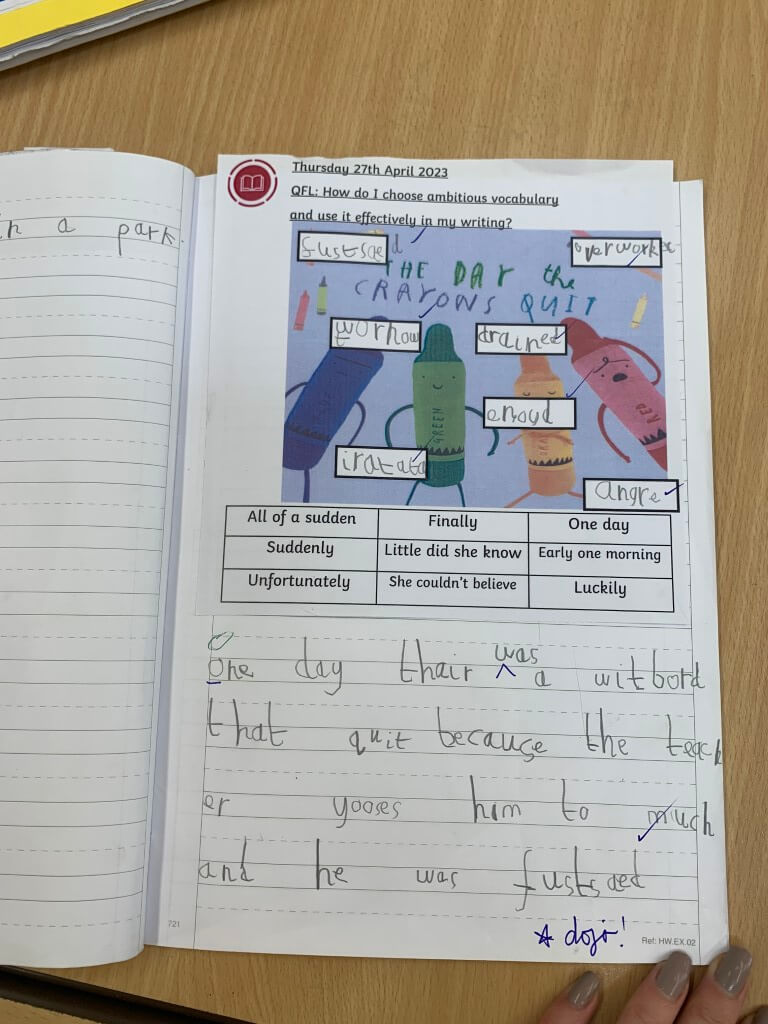 n a park.
Thursday 27th April 2023
QFL: How do I choose ambitious vocabulary
and use it effectively in my writing?
fustsaed
overworked
THE DAY the
CRAYONS QUIT
worhow
drained
enoyd
GREEN
RED
iratata
angre
All of a sudden Finally One day
Suddenly Little did she know Early one morning
Unfortunately She couldn't believe Luckily
was
One day thair ^ a witbord
that quit because the teach
er yooses him to much
and he was fustsaed
721
☆ dojo!
Ref: HW.EX.02